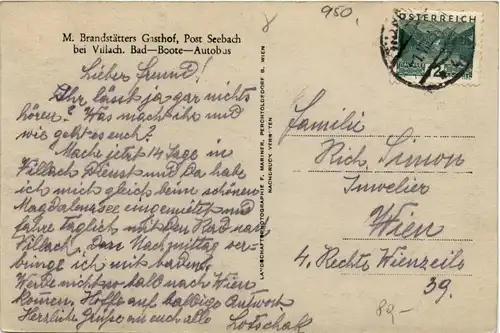 M. Brandstätters Gasthof, Post Seebach
bei Villach. Bad—Boote—Autobus
Lieber Freund!
Ihr lässt ja gar nichts
hören? Was macht ihr und
wie geht es euch?
Mache jetzt 14 Tage in
Villach Dienst und da habe
ich mich gleich beim schönen
Magdalensee eingemietet und
fahre täglich mit dem Rad nach
Villach. Den Nachmittag ver-
bringe ich mit baden.
Werde nicht so bald nach Wien
komen. Hoffe auf baldige Antwort
Herzliche Grüße an euch alle
Lotschak
LANDSCHAFTSFOTOGRAPHIE F. MARINER, PERCHTOLDSDORF B. WIEN
NACHDRUCK VERBOTEN
8
950.
ÖSTERREICH
Familie
Rich. Simon
Juwelier
Wien
4. Rechte Wienzeile
39.
80-